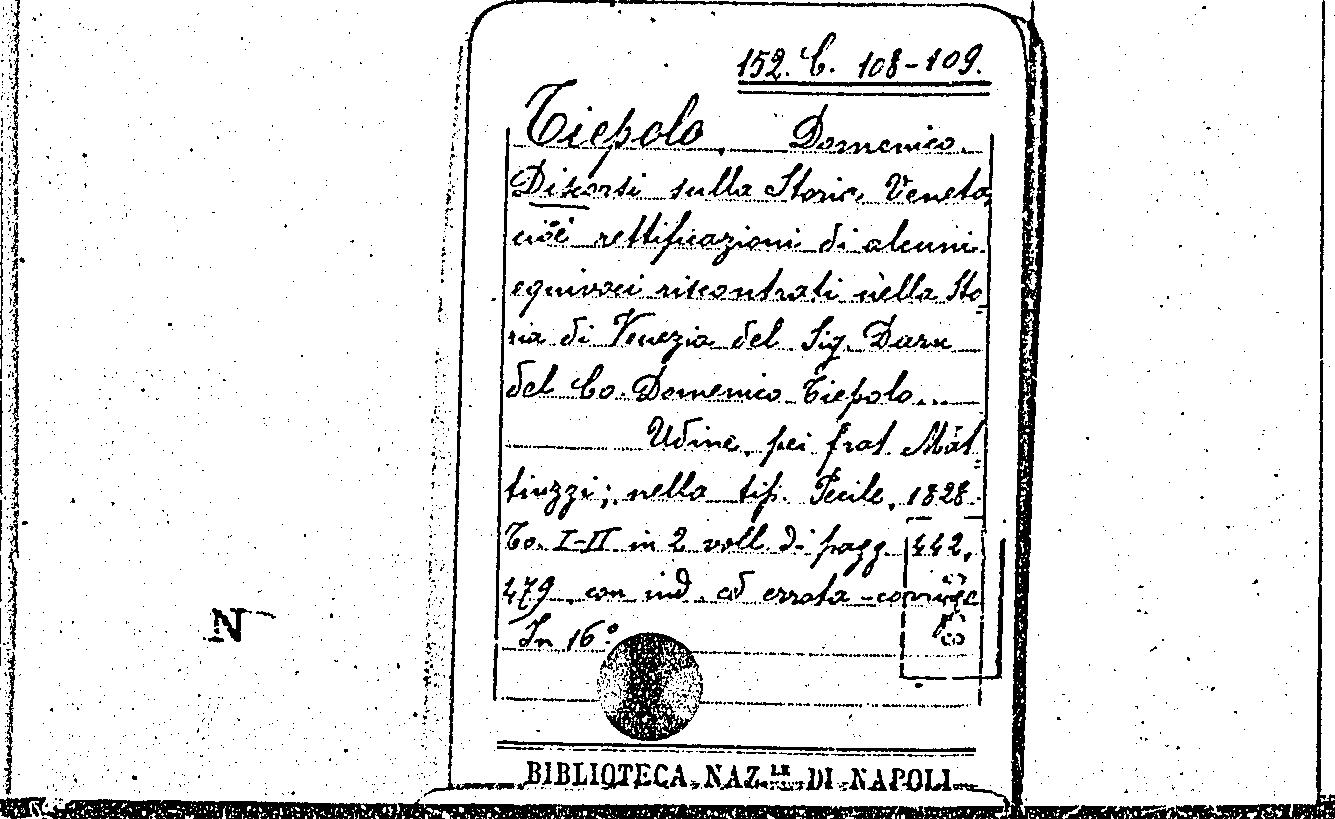 152. C. 108-109.
Tiepolo, Domenico.
Discorsi sulla Storia Veneta,
cioè rettificazioni di alcuni
equivoci riscontrati nella Sto
ria di Venezia del Sig. Daru
del Co. Domenico Tiepolo...
Udine, pei frat. Mat
tiuzzi; nella tip. Pecile, 1828.
To. I-II in 2 voll. di pagg. 442,
479 con ind. ed errata-corrige
In 16º.
N
BIBLIOTECA NAZ.LE DI NAPOLI